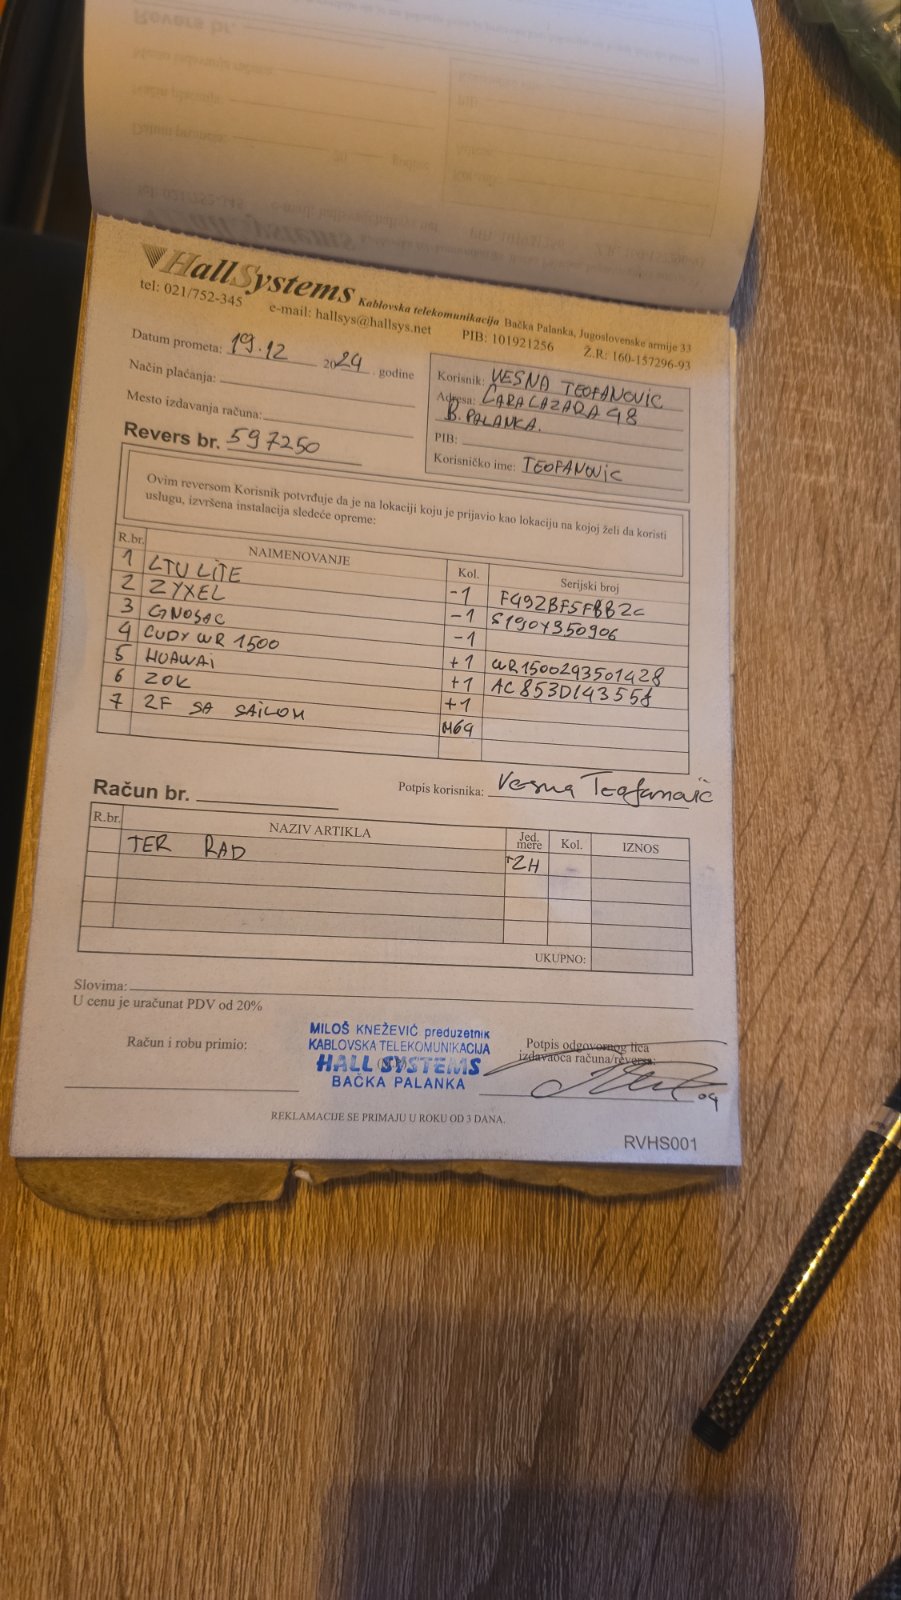 HallSystems Kablovska telekomunikacija Bačka Palanka, Jugoslovenske armije 33
tel: 021/752-345 e-mail: hallsys@hallsys.net PIB: 101921256 Ž.R: 160-157296-93
Datum prometa: 19.12 2024. godine
Način plaćanja:
Mesto izdavanja računa:
Revers br. 597250
Korisnik: VESNA TEOFANOVIC
Adresa: CARA LAZARA 98
B. PALANKA.
PIB:
Korisničko ime: TEOFANOVIC
Ovim reversom Korisnik potvrđuje da je na lokaciji koju je prijavio kao lokaciju na kojoj želi da koristi
uslugu, izvršena instalacija sledeće opreme:
R.br. NAIMENOVANJE Kol. Serijski broj
1 LTU LITE -1 F492BF5FBB2C
2 ZYXEL -1 S190Y350906
3 GNOSAC -1
4 CUDY WR 1500 +1 WR1500293501428
5 HUAWAI +1 AC853D143558
6 ZOK +1
7 2F SA SAILOM M69
Potpis korisnika: Vesna Teofanović
Račun br.
R.br. NAZIV ARTIKLA Jed. mere Kol. IZNOS
TER RAD 2H
UKUPNO:
Slovima:
U cenu je uračunat PDV od 20%
Račun i robu primio:
MILOŠ KNEŽEVIĆ preduzetnik
KABLOVSKA TELEKOMUNIKACIJA
HALL SYSTEMS
BAČKA PALANKA
Potpis odgovornog lica
izdavaoca računa/reversa:
REKLAMACIJE SE PRIMAJU U ROKU OD 3 DANA.
RVHS001